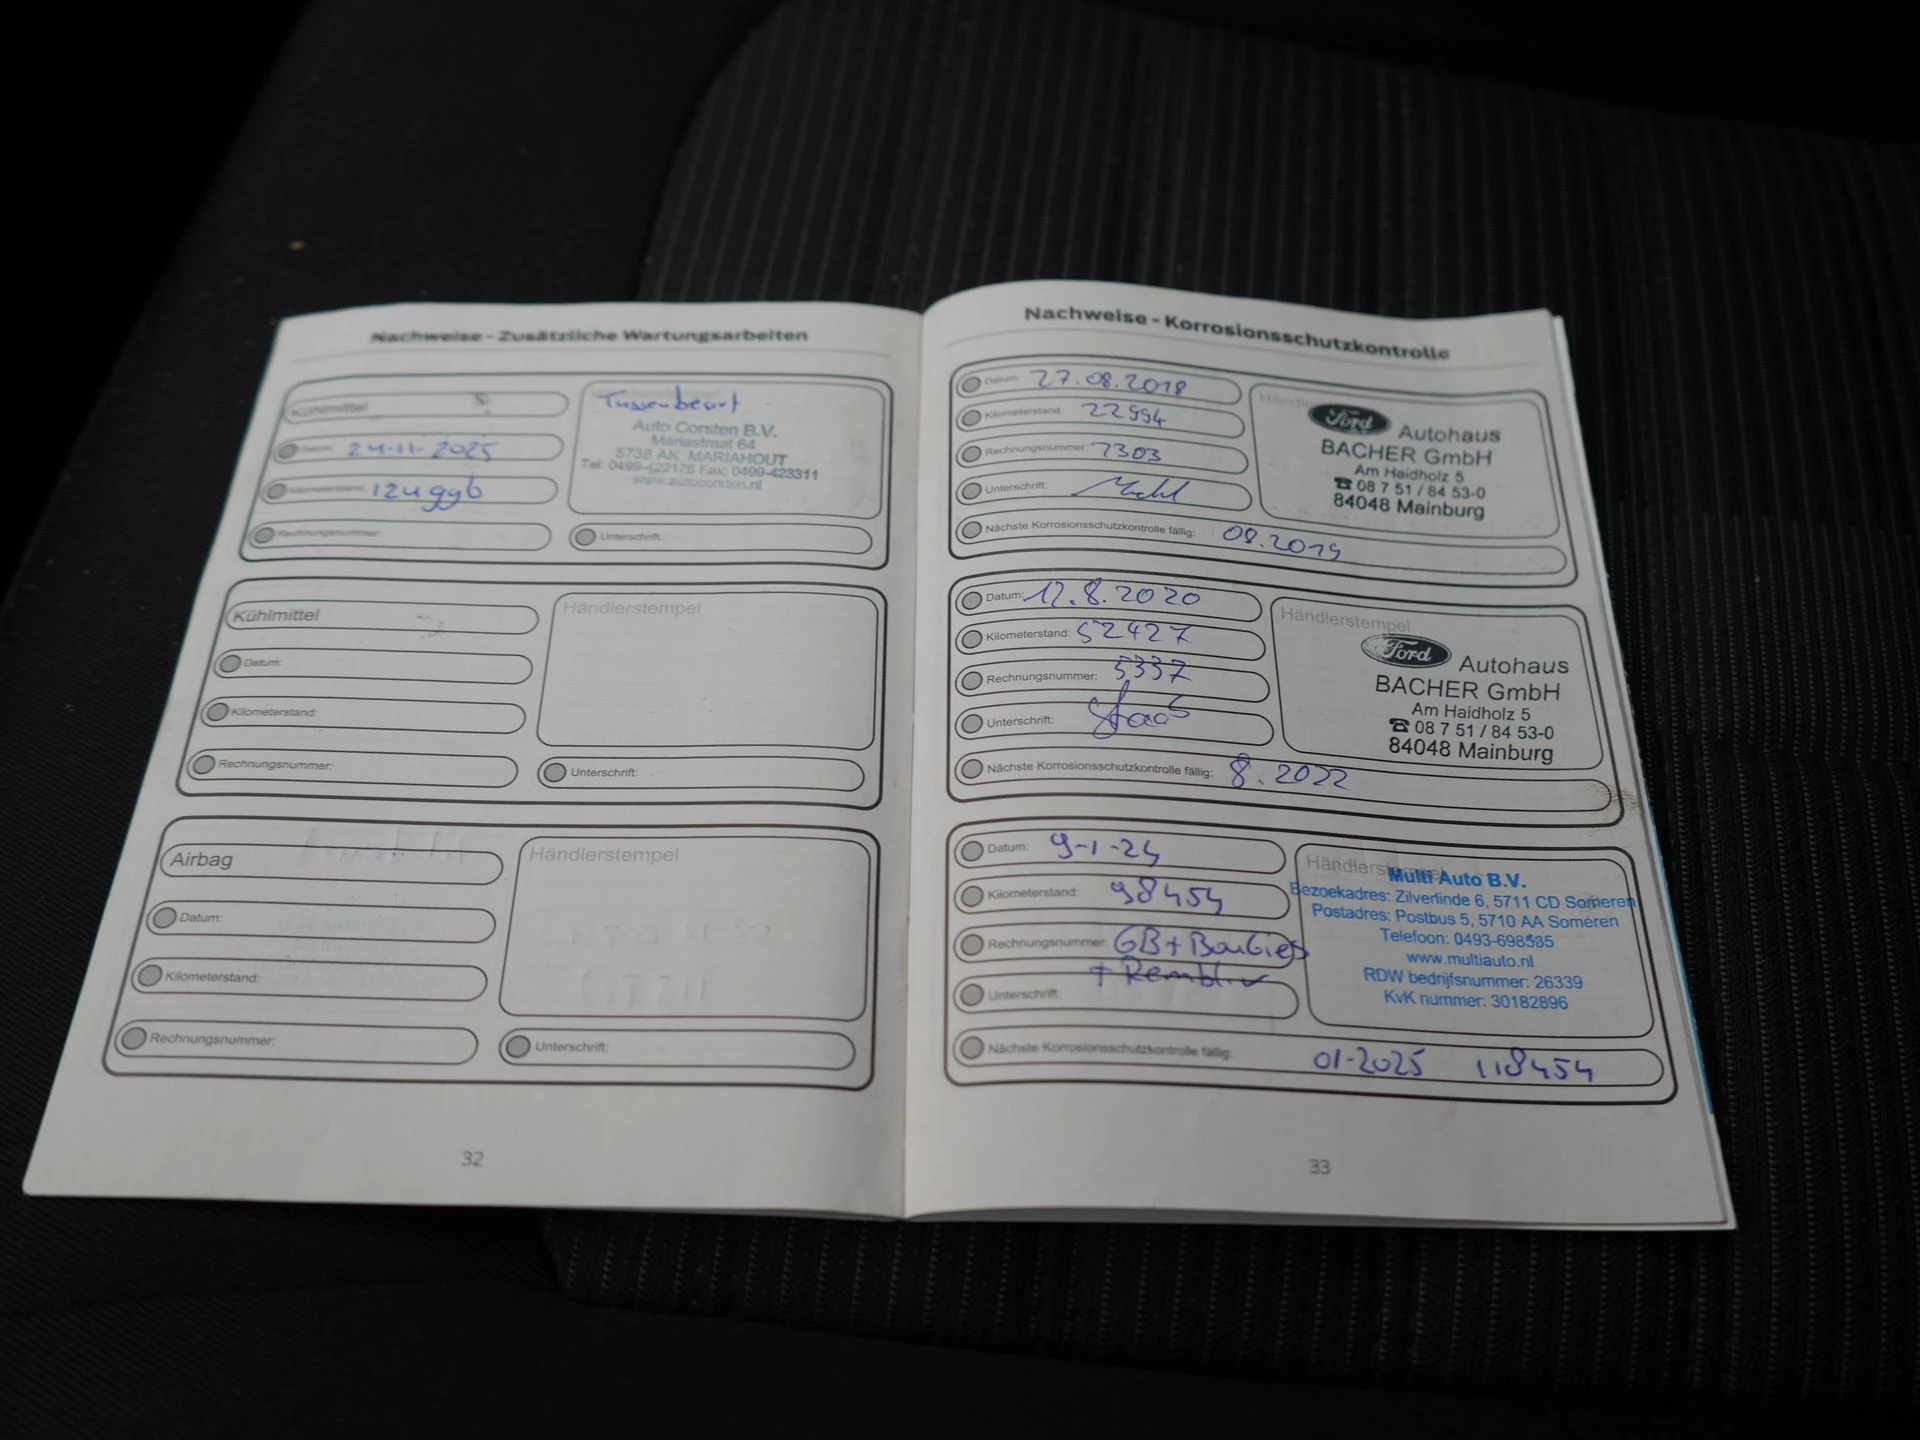 Nachweise - Zusätzliche Wartungsarbeiten
Kühlmittel
Datum: 24-11-2025
Kilometerstand: 124996
Rechnungsnummer:
Tussenbeurt
Auto Corsten B.V.
Mariastraat 64
5738 AK MARIAHOUT
Tel: 0499-422178 Fax: 0499-423311
www.autocorsten.nl
Unterschrift:
Kühlmittel
Datum:
Kilometerstand:
Rechnungsnummer:
Händlerstempel
Unterschrift:
Airbag
Datum:
Kilometerstand:
Rechnungsnummer:
Händlerstempel
Unterschrift:
32
Nachweise - Korrosionsschutzkontrolle
Datum: 27.08.2018
Kilometerstand: 22994
Rechnungsnummer: 7303
Unterschrift:
Nächste Korrosionsschutzkontrolle fällig: 08.2019
Ford Autohaus
BACHER GmbH
Am Haidholz 5
☎ 08 7 51 / 84 53-0
84048 Mainburg
Datum: 12.8.2020
Kilometerstand: 52427
Rechnungsnummer: 5337
Unterschrift:
Nächste Korrosionsschutzkontrolle fällig: 8.2022
Händlerstempel
Ford Autohaus
BACHER GmbH
Am Haidholz 5
☎ 08 7 51 / 84 53-0
84048 Mainburg
Datum: 9-1-24
Kilometerstand: 98454
Rechnungsnummer: GB + Bougies
+ Remblv
Unterschrift:
Nächste Korrosionsschutzkontrolle fällig: 01-2025 118454
Händlerstempel
Multi Auto B.V.
Bezoekadres: Zilverlinde 6, 5711 CD Someren
Postadres: Postbus 5, 5710 AA Someren
Telefoon: 0493-698535
www.multiauto.nl
RDW bedrijfsnummer: 26339
KvK nummer: 30182896
33